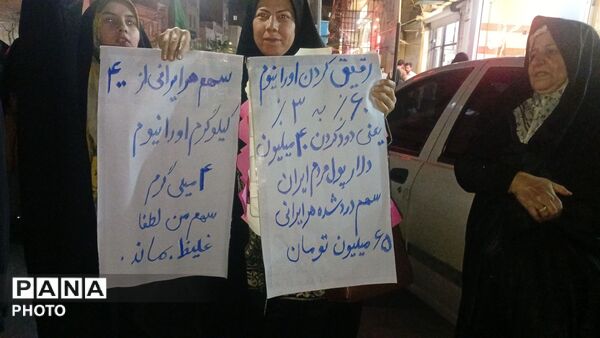 رقیق کردن اورانیوم
۶۰٪ به ۳٪
یعنی دود کردن ۴۰ میلیون
دلار پول مردم ایران
سهم دود شده هر ایرانی
۶۵ میلیون تومان
سهم هر ایرانی از ۴۰۰
کیلوگرم اورانیوم
۴ میلی گرم
سهم من لطفا
غلیظ بماند.
PANA
PHOTO